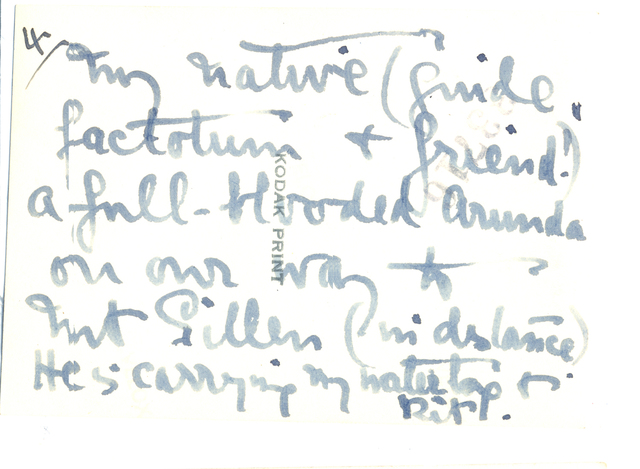 4/
My native (guide,
factotum & friend!)
a full-blooded Arunda
on our way to
Mt Gillen (in distance)
He is carrying my water
KODAK PRINT